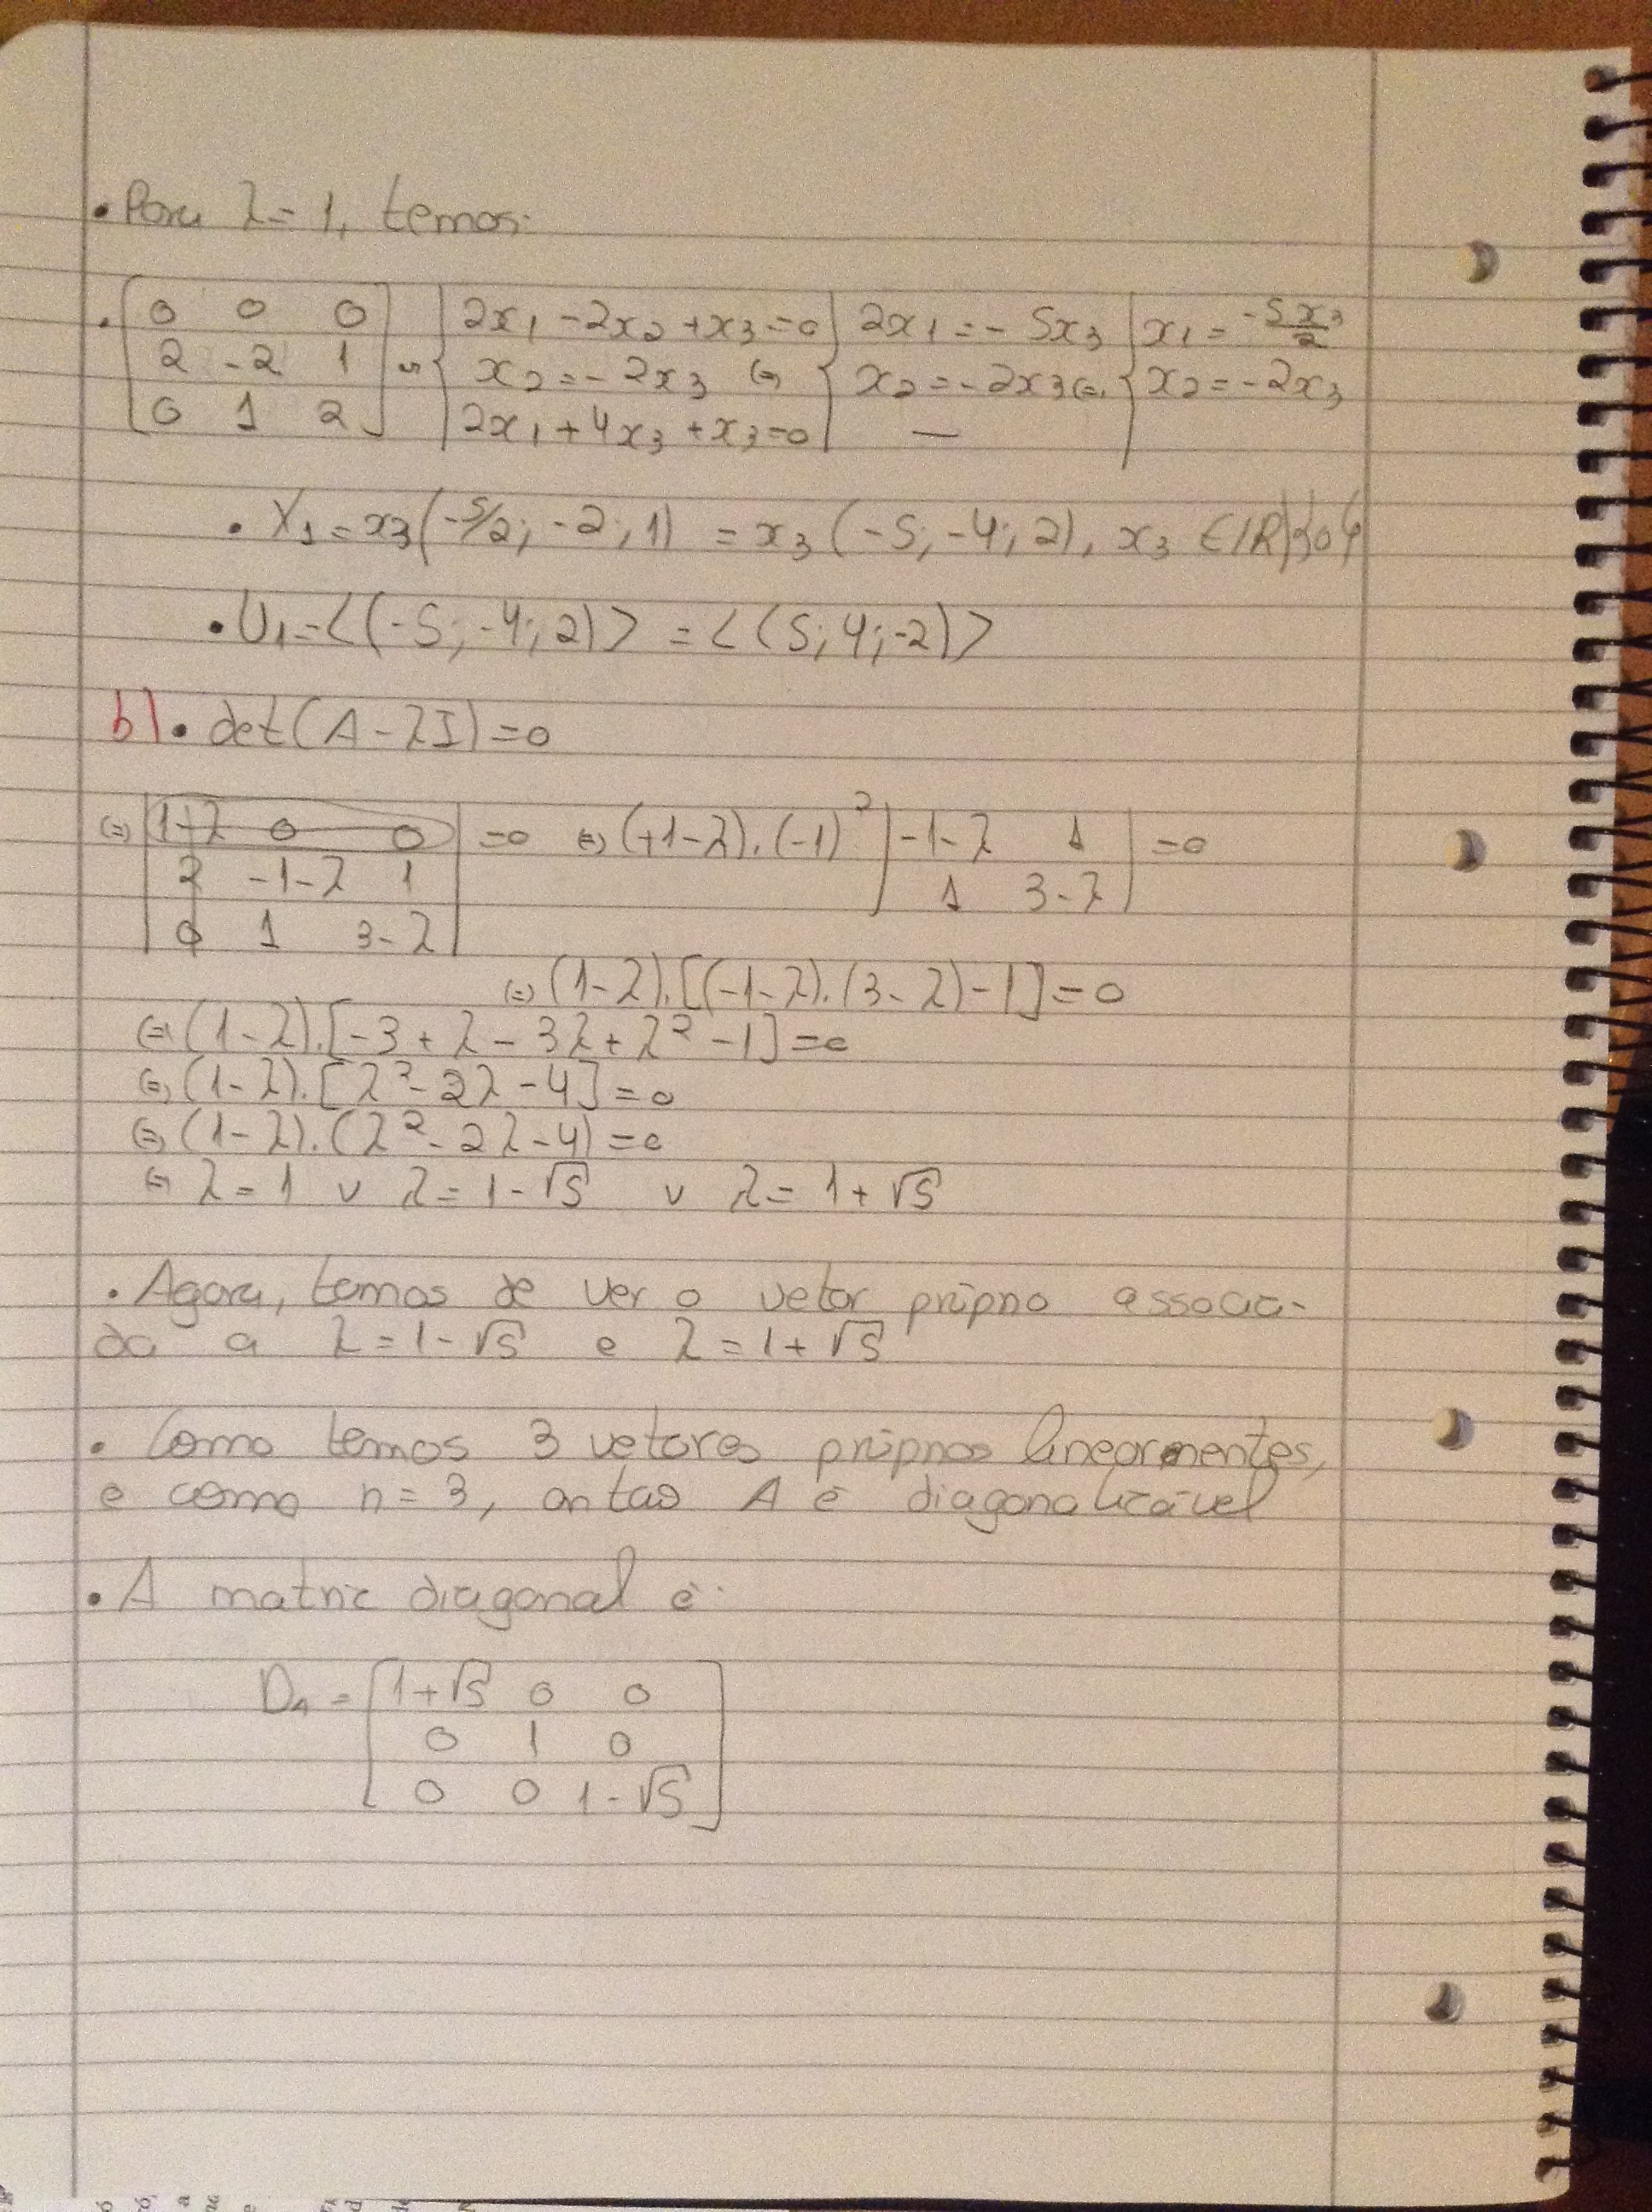 • Para λ = 1, temos:
• [0 0 0 ; 2 -2 1 ; 0 1 2] ~ { 2x₁ - 2x₂ + x₃ = 0 ; x₂ = -2x₃ ; 2x₁ + 4x₃ + x₃ = 0 (=) { 2x₁ = -5x₃ ; x₂ = -2x₃ ; — (=) { x₁ = -5x₃/2 ; x₂ = -2x₃
• X₁ = x₃(-5/2; -2; 1) = x₃(-5; -4; 2), x₃ ∈ IR\{0}
• U₁ = <(-5; -4; 2)> = <(5; 4; -2)>
b) • det(A - λI) = 0
(=) |1-λ 0 0 ; 2 -1-λ 1 ; 0 1 3-λ| = 0 (=) (+1-λ).(-1)² |-1-λ 1 ; 1 3-λ| = 0
(=) (1-λ).[(-1-λ).(3-λ)-1] = 0
(=) (1-λ).[-3 + λ - 3λ + λ² - 1] = 0
(=) (1-λ).[λ² - 2λ - 4] = 0
(=) (1-λ).(λ² - 2λ - 4) = 0
(=) λ = 1 ∨ λ = 1-√5 ∨ λ = 1+√5
• Agora, temos de ver o vetor próprio associa-
do a λ = 1-√5 e λ = 1+√5
• Como temos 3 vetores próprios linearmentes,
e como n = 3, então A é diagonalizável
• A matriz diagonal é:
D₁ = [1+√5 0 0 ; 0 1 0 ; 0 0 1-√5]